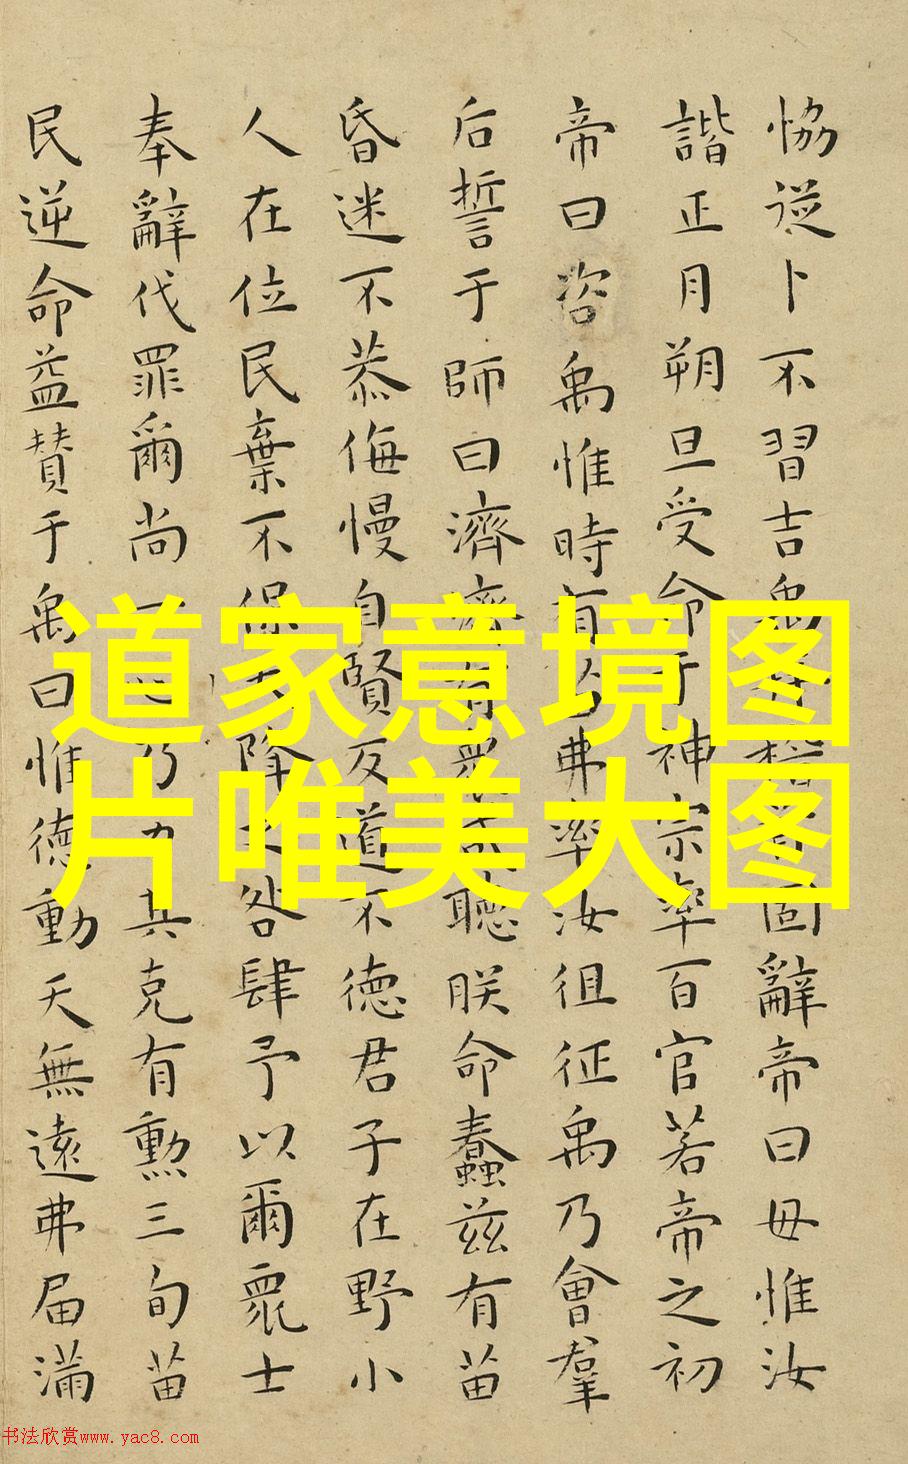 恊從卜不習吉禹拜稽首固辭帝曰毋惟汝
諧正月朔旦受命于神宗率百官若帝之初
帝曰咨禹惟時有苗弗率汝徂征禹乃會羣
后誓于師曰濟濟有衆咸聽朕命蠢茲有苗
昏迷不恭侮慢自賢反道不德君子在野小
人在位民棄不保天降之咎肆予以爾衆士
奉辭伐罪爾尚一心乃力其克有勲三旬苗
民逆命益賛于禹曰惟德動天無遠弗届滿
道家意境图
片唯美大图
书法欣赏www.yac8.com